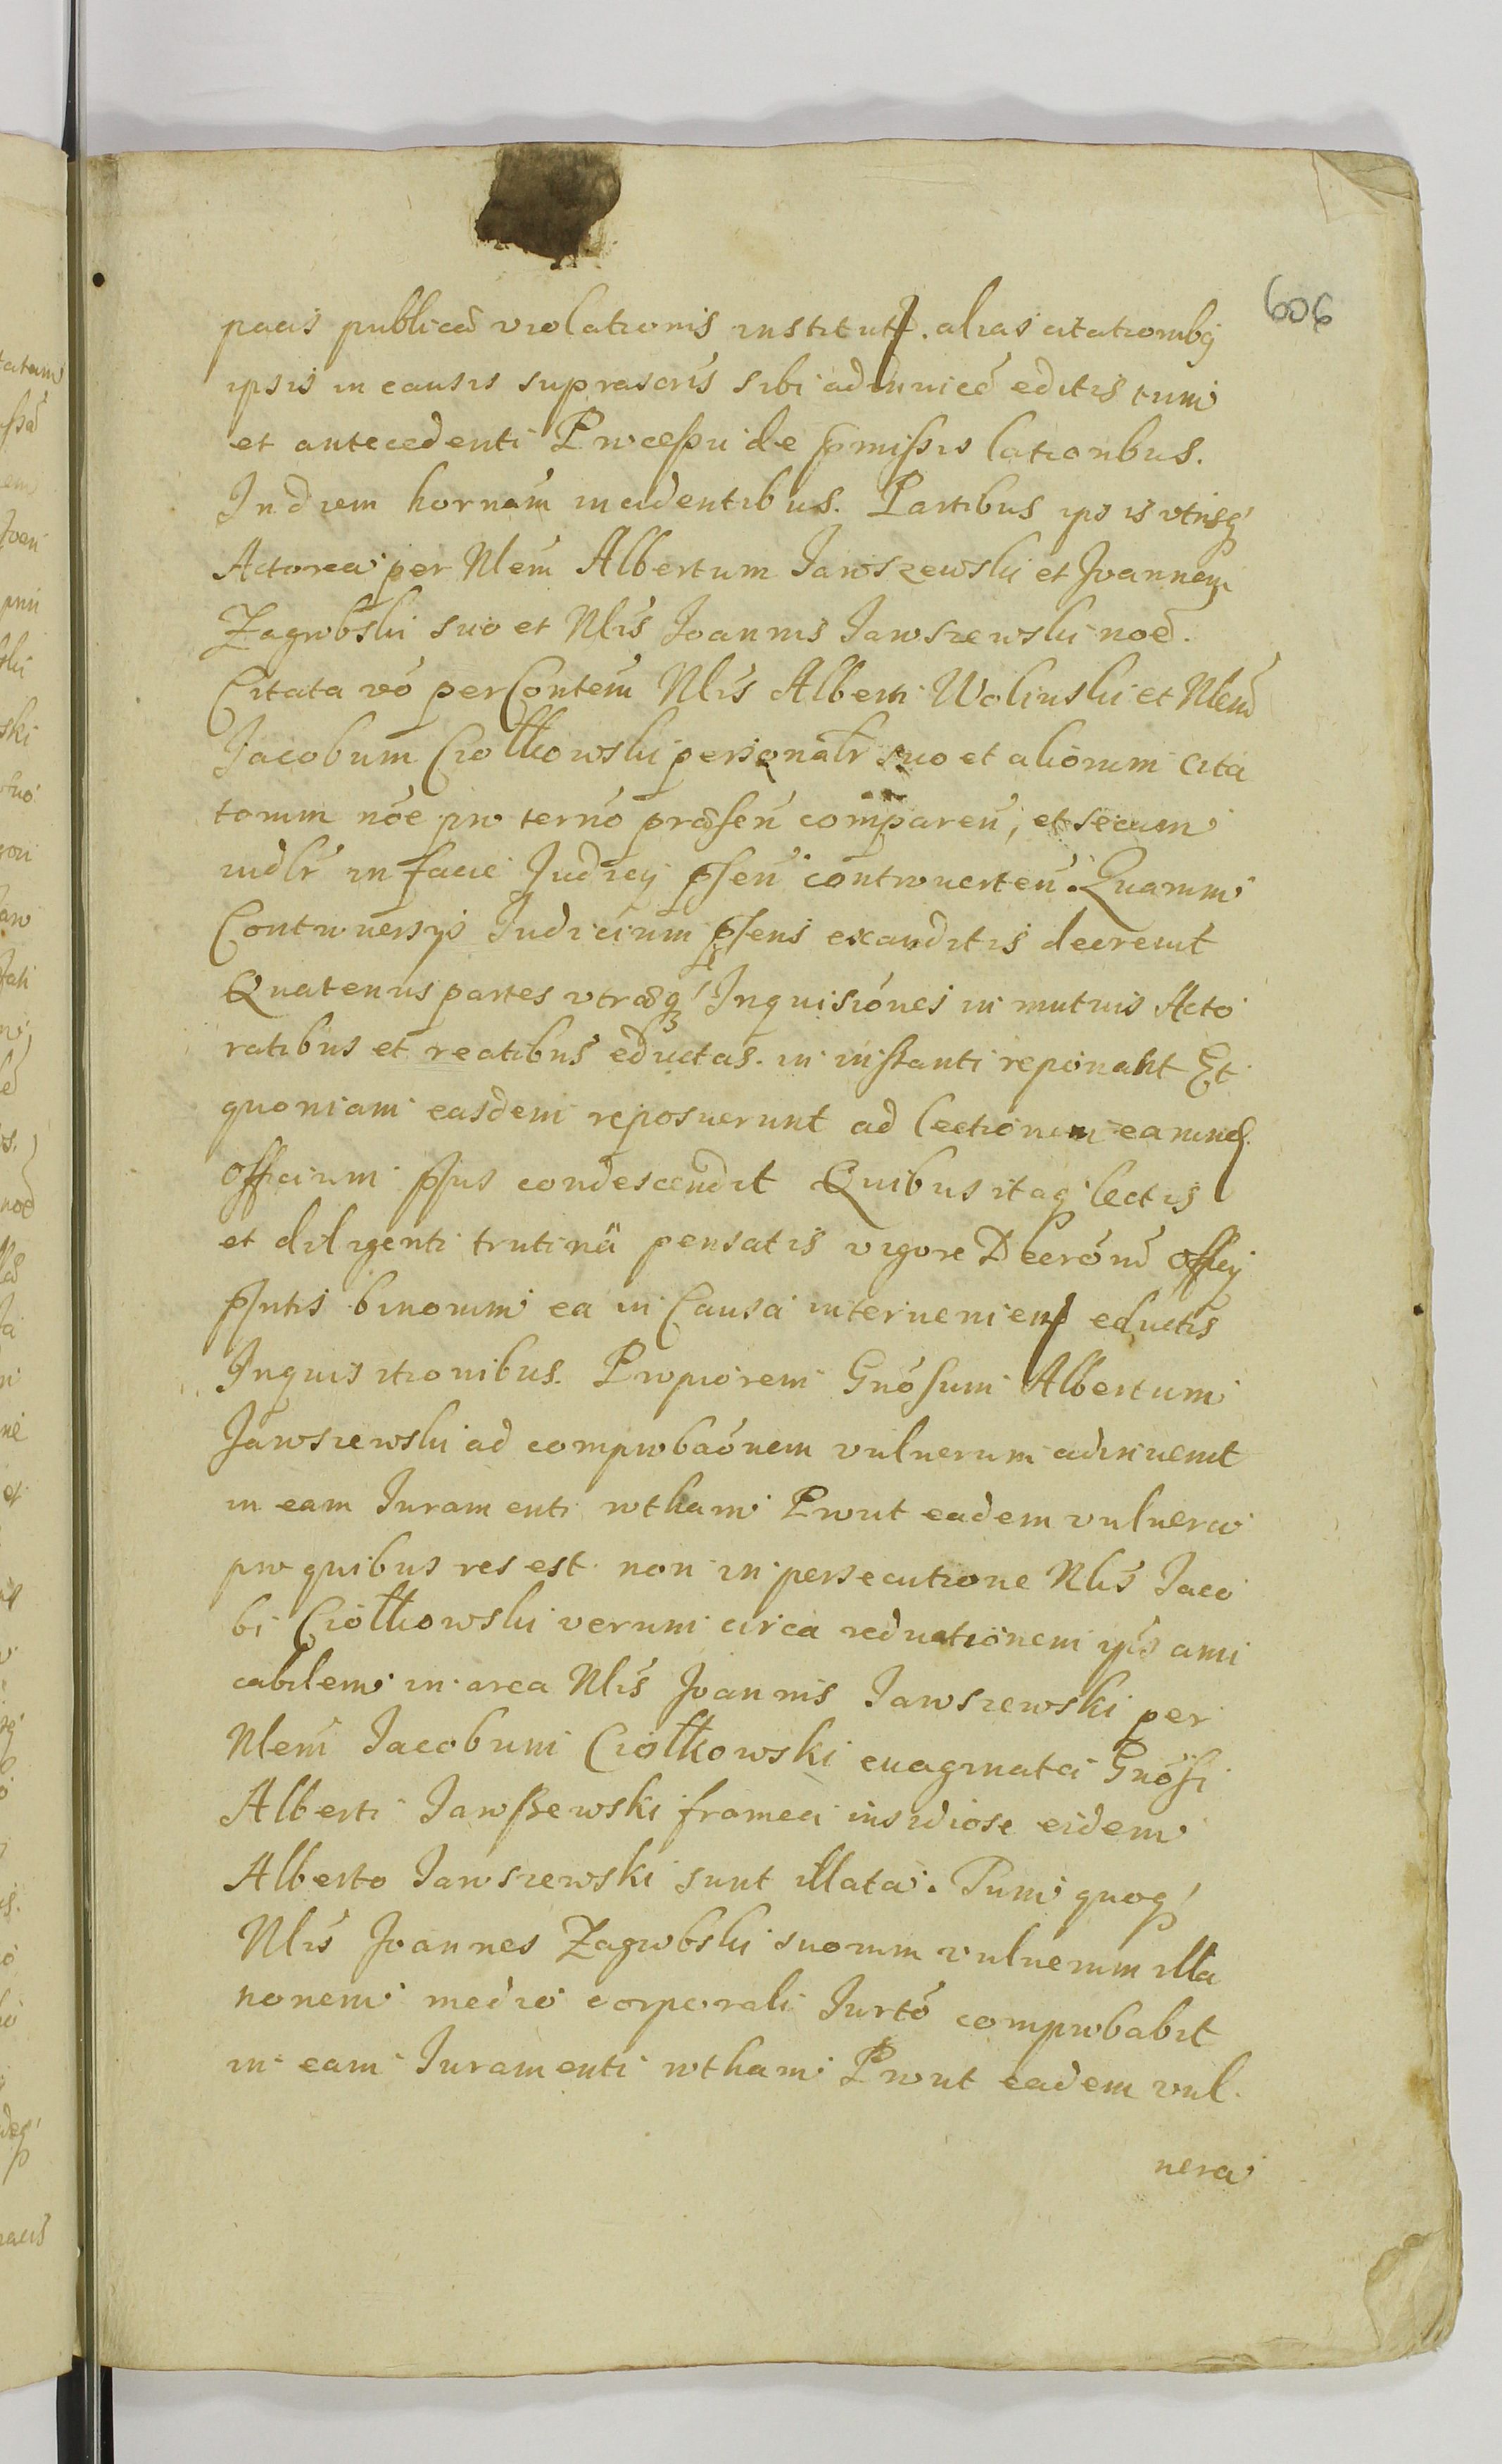 606
pacis publicae violationis institut. alias citationibq
ipsis in causis suprascris sibi adinuice editis tum
et antecedenti Processu de pmissis lationbus.
In diem hornam incidentibus. Partibus ipsis vtrisq
Actorea per Nlem Albertum Jawszewski et Joannem
Zagrobski suo et Nlis Joannis Jawszewski noe.
Citata vo per Contem Nlis Alberti Wolinski et Nlem
Jacobum Ciołkowski personalr suo et aliorum cita
torum nóe pro terno praesen comparen, et secum
iudlr in facie Judicij psen controuerten. Quarum
Controuersys Judicium psens exauditis decreuit
Quatenus partes vtraeq Inquisiónes in mutuis Acto
ratibus et reatibus eductas in instanti reponant Et
quoniam easdem reposuerunt ad lectionem earund.
officium psns condescendit Quibus itaq lectis
et diligenti trutina pensatis vigore Decrónu officij
psntis binorum ea in Causa interuenien eductis
Inquisitionibus. Propiorem Gnósum Albertum
Jawszewski ad comprobaónem vulnerum adinuenit
in eam Juramenti rotham Prout eadem vulnera
pro quibus res est non in persecutione Nlis Jaco
bi Ciołkowski verum circa reductionem ips ami
cabilem in area Nlis Joannis Jawszewski per
Nlem Jacobum Ciołkowski euaginata Gnósi
Alberti Jawszewski framea insidiose eidem
Alberto Jawszewski sunt illata. Tum quoq
Nlis Joannes Zagrobski suorum vulnerum illa
tionem medio corporali Jurtó comprobabit
in eam Juramenti rotham Prout eadem vul
nera